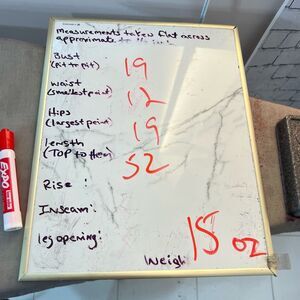 measurements taken flat across
approximate to
Bust : 19
(pit to pit)
Waist : 12
(smallest point)
Hips : 19
(largest point)
Length : 52
(TOP to Hem)
Rise :
Inseam :
leg opening :
Weigh 15 oz
EXPO